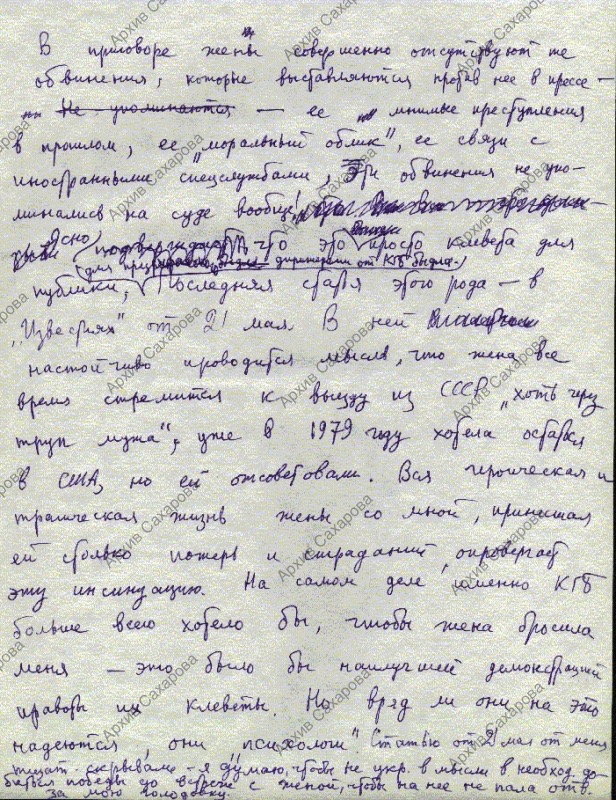 В приговоре жены совершенно отсутствуют те
обвинения, которые выставляются против нее в прессе —
Не упоминаются — ее мнимые преступления
в прошлом, ее "моральный облик", ее связи с
иностранными "спецслужбами", Эти обвинения не упо-
минались на суде вообще!
Ясно что это просто клевета для
публики, Последняя статья этого рода — в
„Известиях" от 21 мая. В ней
настойчиво проводится мысль, что жена все
время стремится к выезду из СССР, „хоть через
труп мужа"; уже в 1979 году хотела остаться
в США, но ей отсоветовали. Вся героическая и
трагическая жизнь жены со мной, принесшая
ей столько потерь и страданий, опровергает
эту инсинуацию. На самом деле именно КГБ
больше всего хотело бы, чтобы жена бросила
меня — это было бы наилучшей демонстрацией
правоты их клеветы. Но вряд ли они на это
надеются, они „психологи". Статью от 21 мая от меня
тщат. скрывали - я думаю, чтобы не укр. в мысли в необход. до-
биться победы до встречи с женой, чтобы на нее не пала отв.
за мою голодовку.
Архив Сахарова